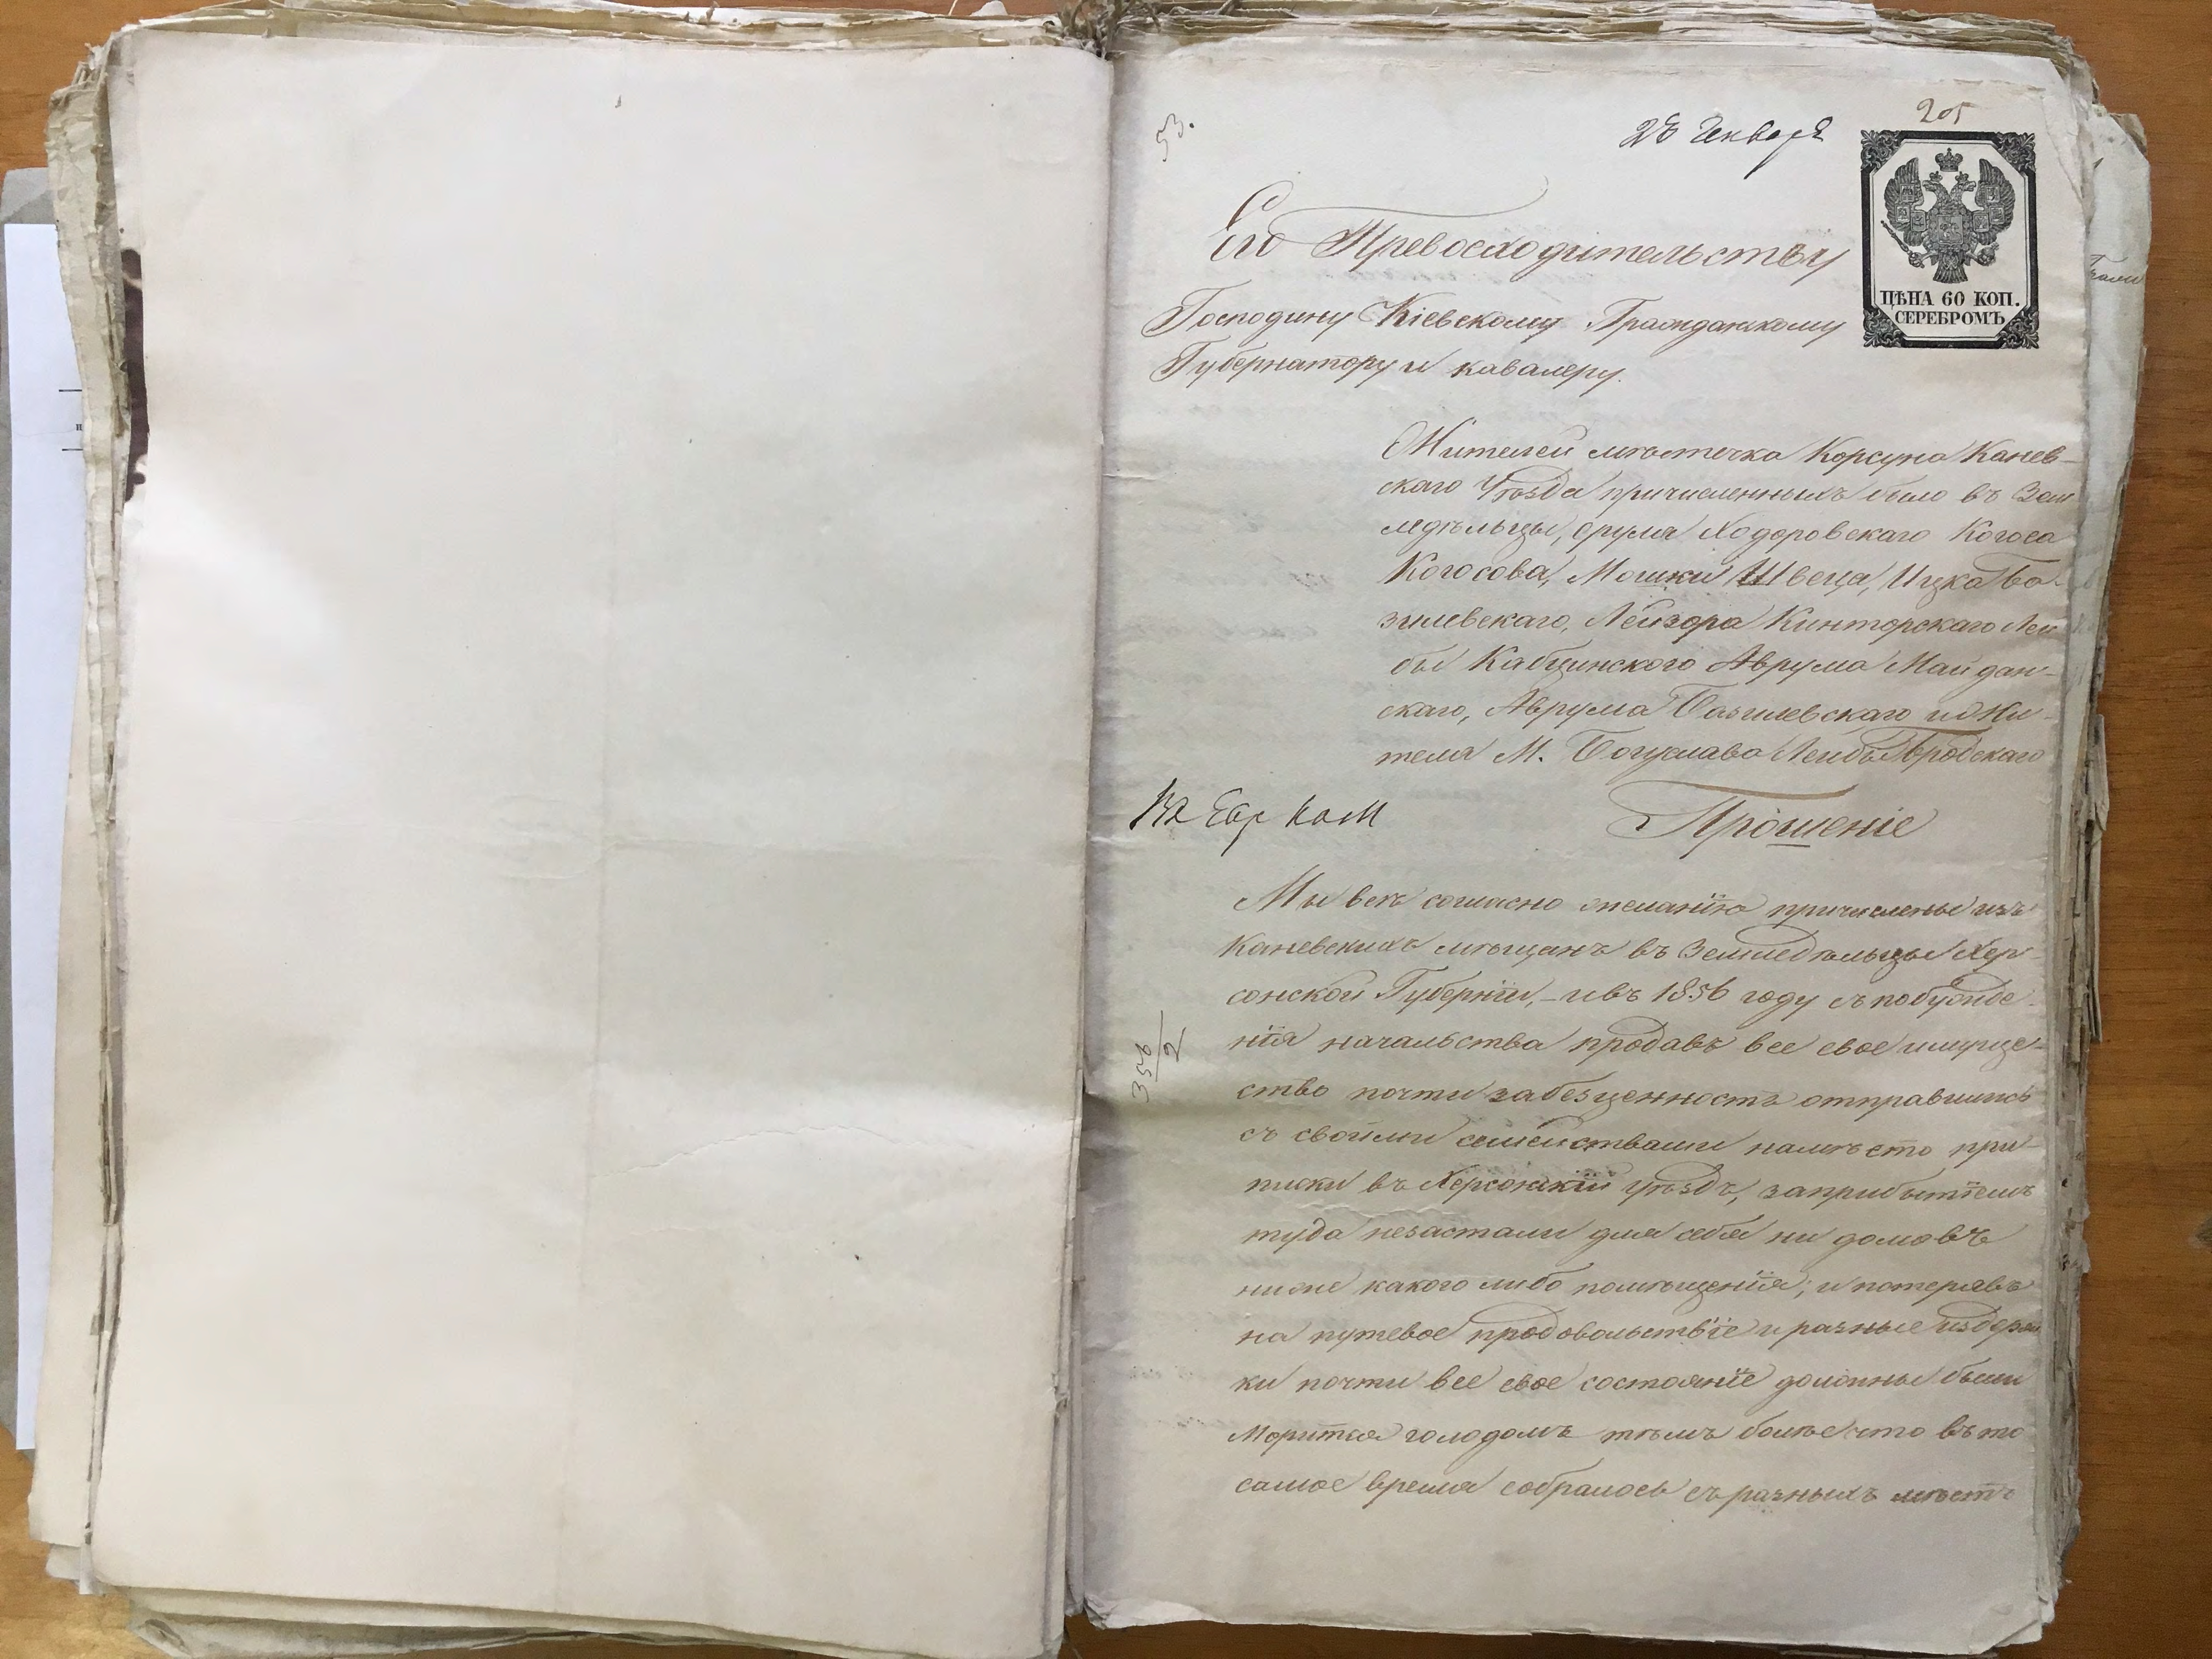 53.
28 Генваря
205
ЦѢНА 60 КОП.
СЕРЕБРОМЪ
Его Превосходительству
Господину Кіевскому Гражданскому
Губернатору и кавалеру.
Жителей мѣстечка Корсуна Канев-
скаго Уѣзда причисленныхъ было въ Зем
ледѣльцы, Срумя Ходоровскаго Когоса
Когосова, Мошки Швеца, Ицка Ба-
зилевскаго, Лейзора Кинторскаго Лей
бы Кабцинского Аврума Майдан-
скаго, Аврума Базилевскаго и Жи-
теля М. Богуслава Лейбы Бродскаго
Въ Евр Ком
Прошеніе
Мы всѣ согласно желанію причислены изъ
Каневскихъ мѣщанъ въ Земледѣльцы Хер-
сонской Губерніи, - и въ 1856 году съ побужде-
нія начальства продавъ все свое имуще-
ство почти за безценность отправились
3556/2
съ своими семействами на мѣсто при-
писки въ Херсонскій уѣздъ, за прибытіемъ
туда незастали для себя ни домовъ
ниже какого либо помѣщенія; и потерявъ
на путевое продовольствіе и разные издерж
ки почти все свое состояніе должны были
моритса голодомъ тѣмъ болѣе что въ то
самое время собралось съ разныхъ мѣстъ